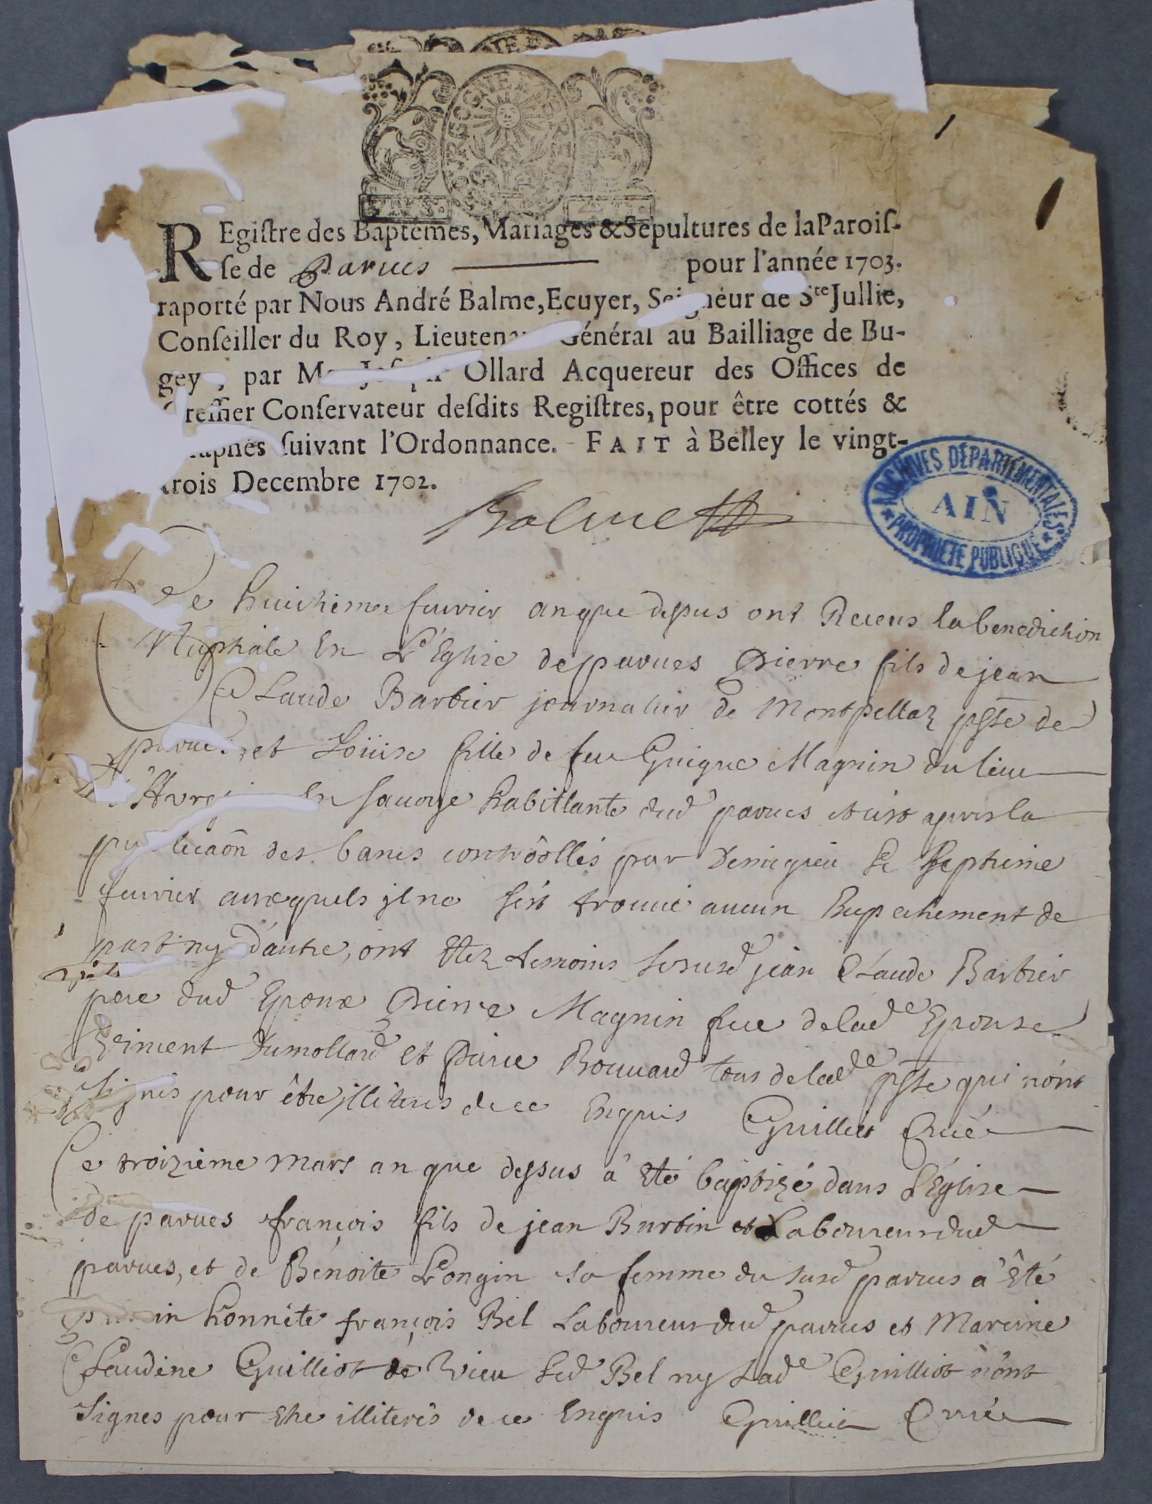 REgiſtre des Baptêmes, Mariages & Sepultures de la Paroiſ-
ſe de Parues pour l'année 1703.
raporté par Nous André Balme, Ecuyer, Seigneur de Ste Jullie,
Conſeiller du Roy, Lieutenant Général au Bailliage de Bu-
gey, par Me Joſeph Ollard Acquereur des Offices de
Greffier Conſervateur deſdits Regiſtres, pour être cottés &
paraphés ſuivant l'Ordonnance. FAIT à Belley le vingt-
trois Decembre 1702.
Balme
ARCHIVES DÉPARTEMENTALES
AIN
PROPRIÉTÉ PUBLIQUE
Le huitieme feuvrier an que dessus ont Receus la benediction
Nuptiale En L'Eglise de parues Pierre fils de jean
Claude Barbier journalier de Montpellaz psse de
parues, et Loüise fille de feu Guigue Magnin du lieu
En Sauoye habitante dud parues et ce apres la
publicaôn des bancs controollés par le septieme
feuvrier auxquels il ne s'est trouué aucun Empechement de
part ny d'autre, ont Etez temoins le susd jean Claude Barbier
pere dud Epoux Pierre Magnin frere de lade Epouse
Dumollard et Pierre Bouuard tous de lade psse qui n'ont
signés pour être illiterés de ce Enquis Guillet Curé
Ce troizieme mars an que dessus a Eté baptizé dans l'Eglise
de parues françois fils de jean Burtin Laboureur dud
parues, et de Benoite Longin sa femme du susd parues a Eté
parrain honnête françois Bel Laboureur dud parues et Mareine
Claudine Guilliot de Vieu led Bel ny lade Guilliot n'ont
signes pour Etre illiterés de ce Enquis Guillet Curé